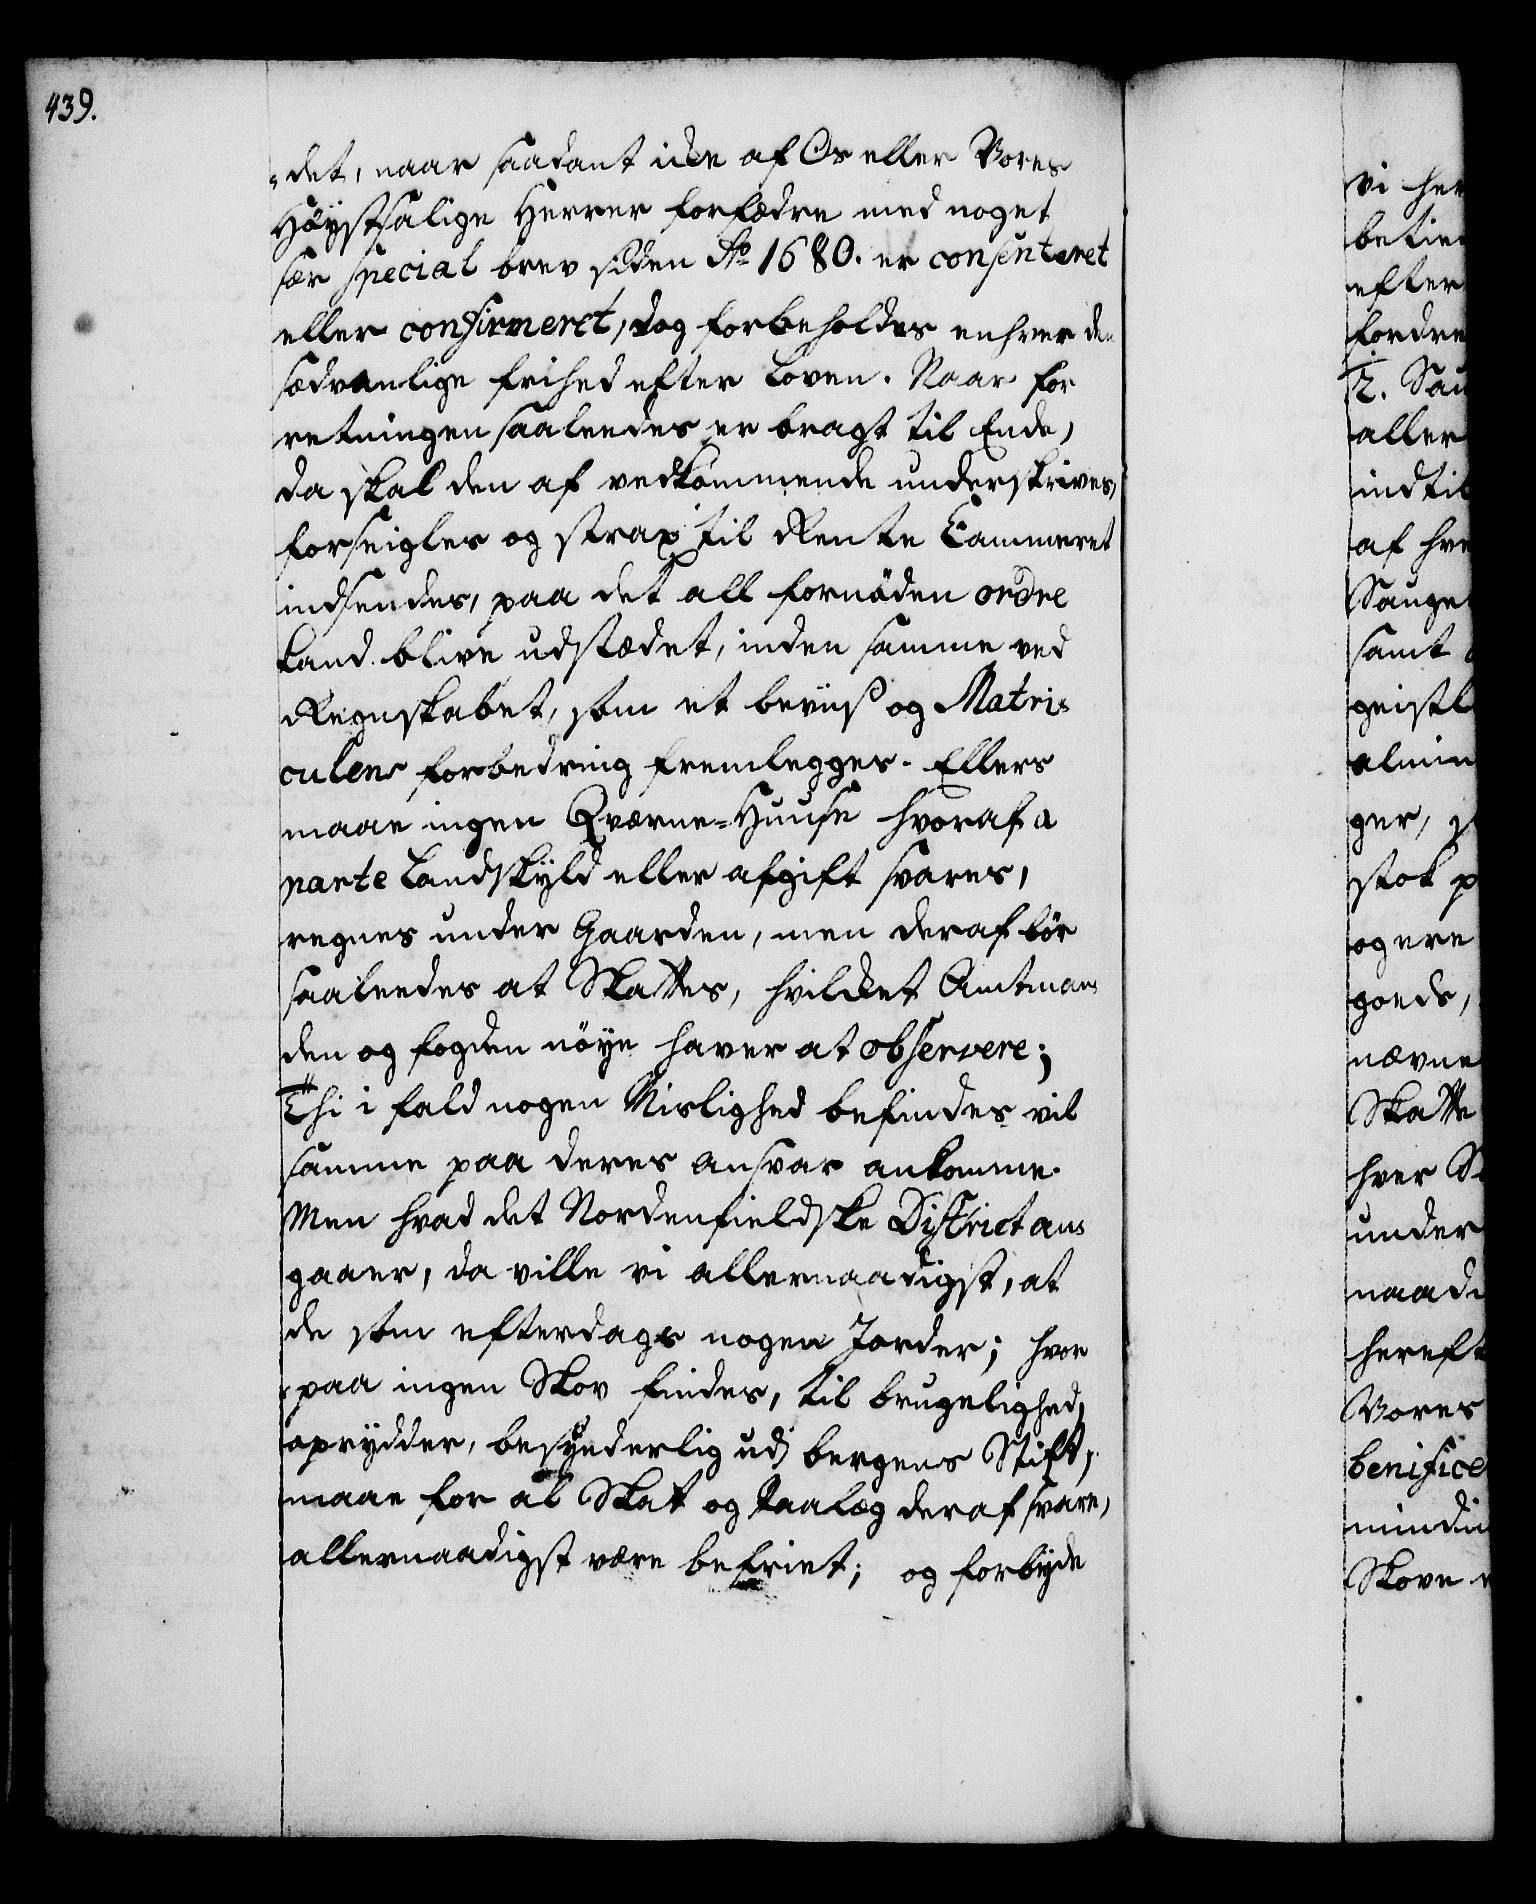 439.
-det, naar saadant icke af Os eller Vores
Høystsalige Herrer forfædre med noget
sær special brev siden Ao 1680. er consenteret
eller confirmeret, dog forbeholdes enhver den
sædvanlige frihed efter Loven. Naar for
retningen saaledes er bragt til Ende,
da skal den af vedkommende underskrives,
forseigles og strax til Rente Cammeret
indsendes, paa det all fornøden ordre
kand blive udstædet, inden samme ved
Regnskabet, som et beviis og Matri-
culens forbedring fremlegges. Ellers
maae ingen Qværne-Huuse hvoraf a
parte Landskyld eller afgift svares,
regnes under Gaarden, men deraf bør
saaleedes at Skattes, hvilcket Amtman-
den og fogden nøye haver at observere;
Thi i fald nogen Mislighed befindes vil
samme paa deres ansvar ankomme.
Men hvad det Nordenfieldske District an-
gaaer, da ville vi allernaadigst, at
de som efterdags nogen Jorder; hvor
-paa ingen Skov findes, til brugelighed,
oprydder, besynderlig udj bergens Stift,
maae for al Skat og Paalæg deraf svare,
allernaadigst være befriet; og forbyde
vi her
betien
efter
fordre
2. Sau
aller
indtil
af hve
Sauge
samt
geistl
almin
ger,
stok p
og ere
goeds,
nævne
Skatte
hver S
under
naadi
hereft
Vores
benifice
mindi
Skove